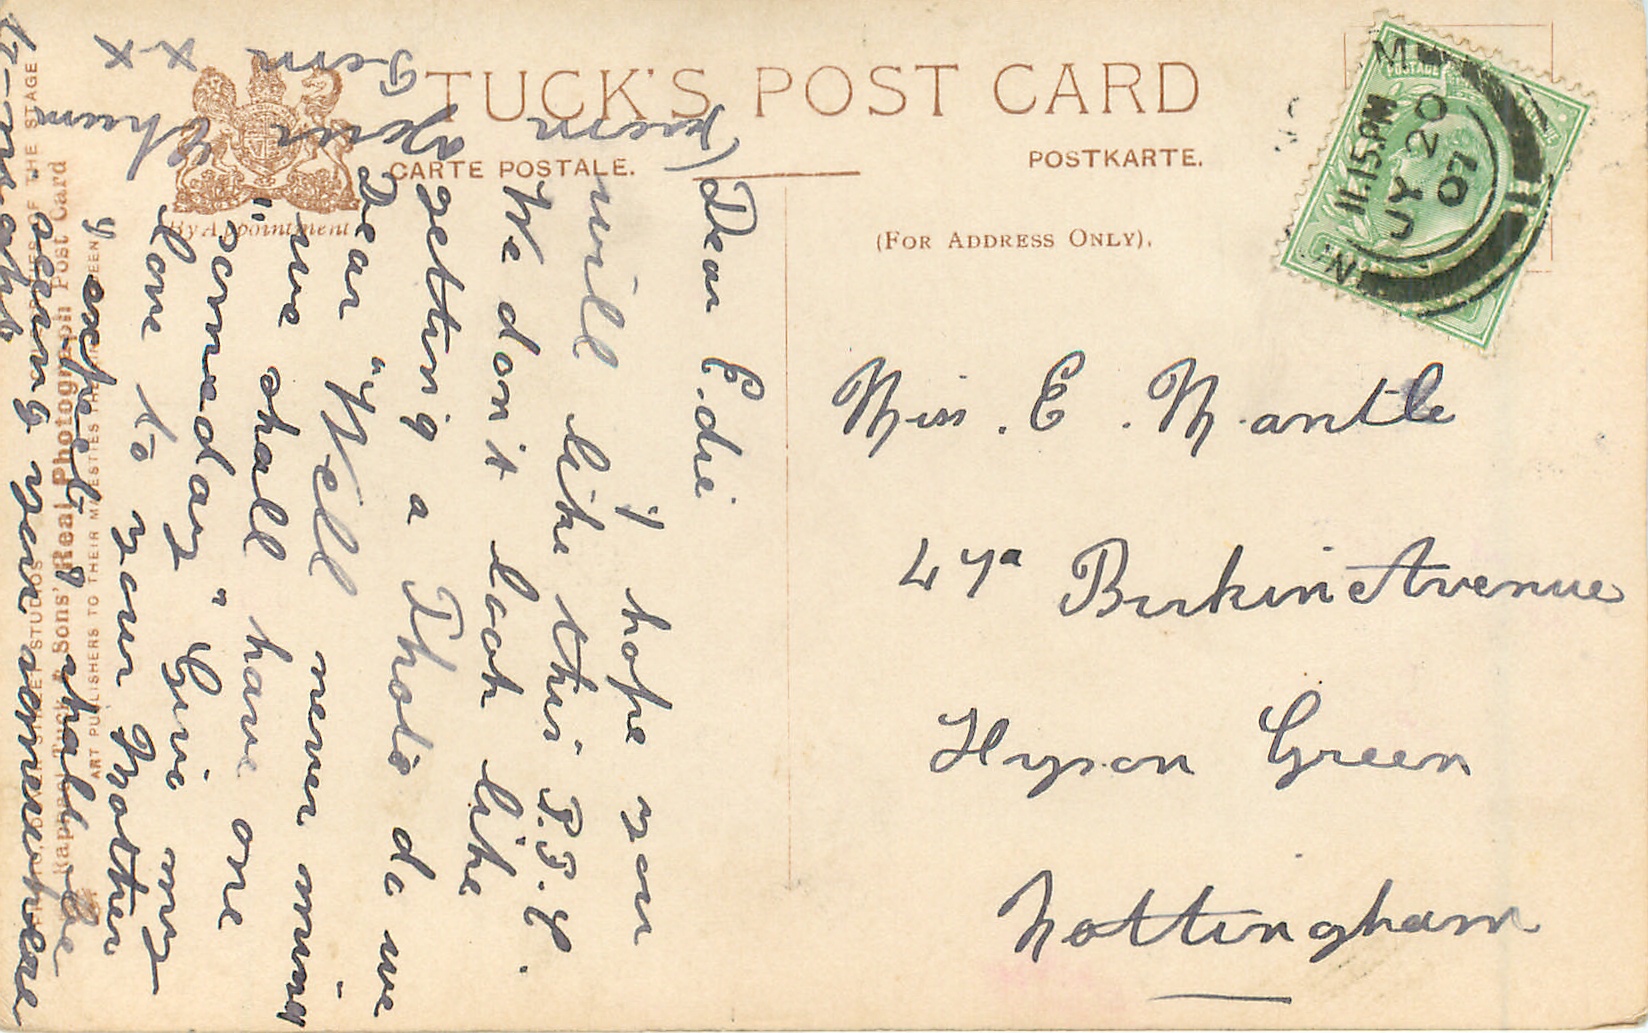 TUCK'S POST CARD
CARTE POSTALE.
POSTKARTE.
(FOR ADDRESS ONLY).
By Appointment
11.15.PM
JY 20
07
Miss. E. Mantle
47a Birkin Avenue
Hyson Green
Nottingham
Dear Edie
I hope you
will like this P.P.C.
We don't look like
getting a Photo do we
Dear "Well never mind
we shall have one
someday" Give my
love to your Mother
I expect I shall be
seeing you somewhere
to-night
from
Your Chum
Gem
x x
Raphael Tuck & Sons' "Real Photograph" Post Card
ART PUBLISHERS TO THEIR MAJESTIES THE KING & QUEEN